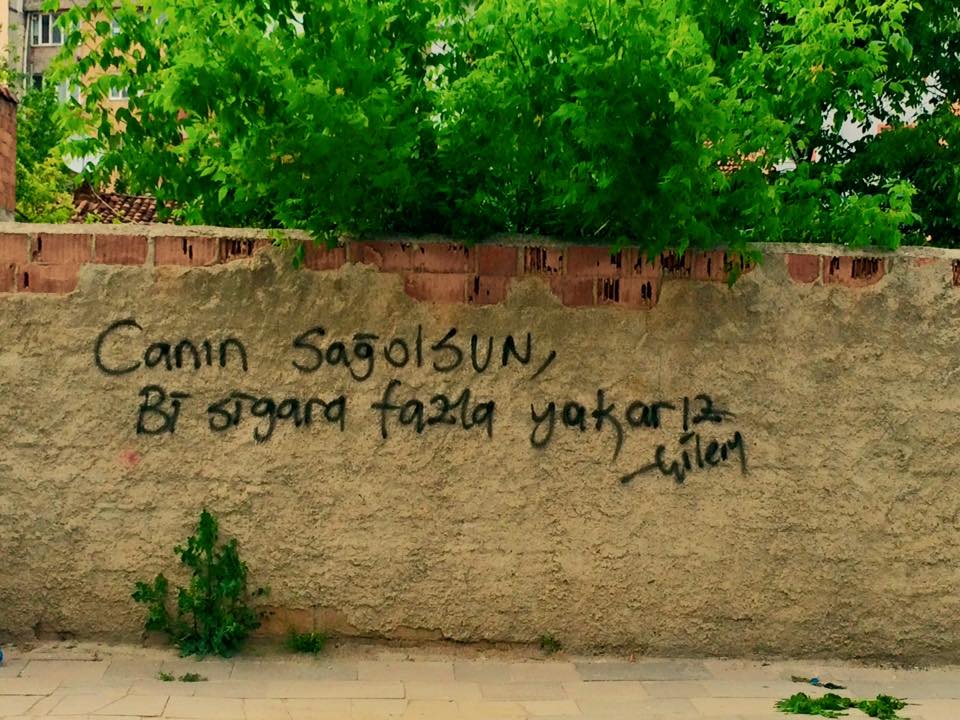 Canın SağolSUN,
Bi sigara fazla yakarız
Çilem